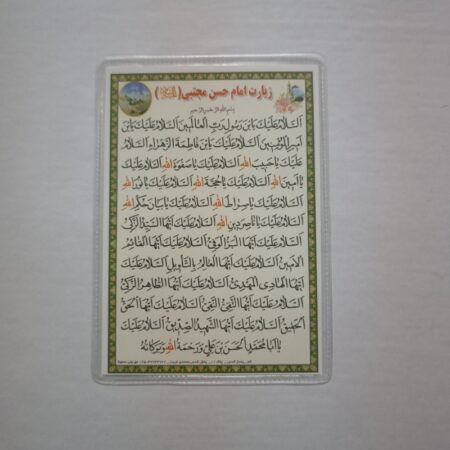 زیارت امام حسن مجتبی (علیه السلام)
بِسْمِ اللهِ الرَّحْمنِ الرَّحیمِ
اَلسَّلامُ عَلَیْكَ یَا بْنَ رَسُولِ رَبِّ الْعالَمینَ اَلسَّلامُ عَلَیْكَ یَا بْنَ
اَمیرِ الْمُؤْمِنینَ اَلسَّلامُ عَلَیْكَ یَا بْنَ فاطِمَةَ الزَّهْراءِ اَلسَّلامُ
عَلَیْكَ یا حَبیبَ اللهِ اَلسَّلامُ عَلَیْكَ یا صَفْوَةَ اللهِ اَلسَّلامُ عَلَیْكَ
یا اَمینَ اللهِ اَلسَّلامُ عَلَیْكَ یا حُجَّةَ اللهِ اَلسَّلامُ عَلَیْكَ یا نُورَ اللهِ
اَلسَّلامُ عَلَیْكَ یا صِراطَ اللهِ اَلسَّلامُ عَلَیْكَ یا بَیانَ حُكْمِ اللهِ
اَلسَّلامُ عَلَیْكَ یا ناصِرَ دینِ اللهِ اَلسَّلامُ عَلَیْكَ اَیُّهَا السَّیِّدُ الزَّكِیُّ
اَلسَّلامُ عَلَیْكَ اَیُّهَا الْبَرُّ الْوَفِیُّ اَلسَّلامُ عَلَیْكَ اَیُّهَا الْقائِمُ
الْاَمینُ اَلسَّلامُ عَلَیْكَ اَیُّهَا الْعالِمُ بِالتَّأْویلِ اَلسَّلامُ عَلَیْكَ
اَیُّهَا الْهادِی الْمَهْدِیُّ اَلسَّلامُ عَلَیْكَ اَیُّهَا الطّاهِرُ الزَّكِیُّ
اَلسَّلامُ عَلَیْكَ اَیُّهَا التَّقِیُّ النَّقِیُّ اَلسَّلامُ عَلَیْكَ اَیُّهَا الْحَقُّ
الْحَقیقُ اَلسَّلامُ عَلَیْكَ اَیُّهَا الشَّهیدُ الصِّدّیقُ اَلسَّلامُ عَلَیْكَ
یا اَبا مُحَمَّدٍ الْحَسَنَ بْنَ عَلِیٍّ وَ رَحْمَةُ اللهِ وَ بَرَكاتُهُ